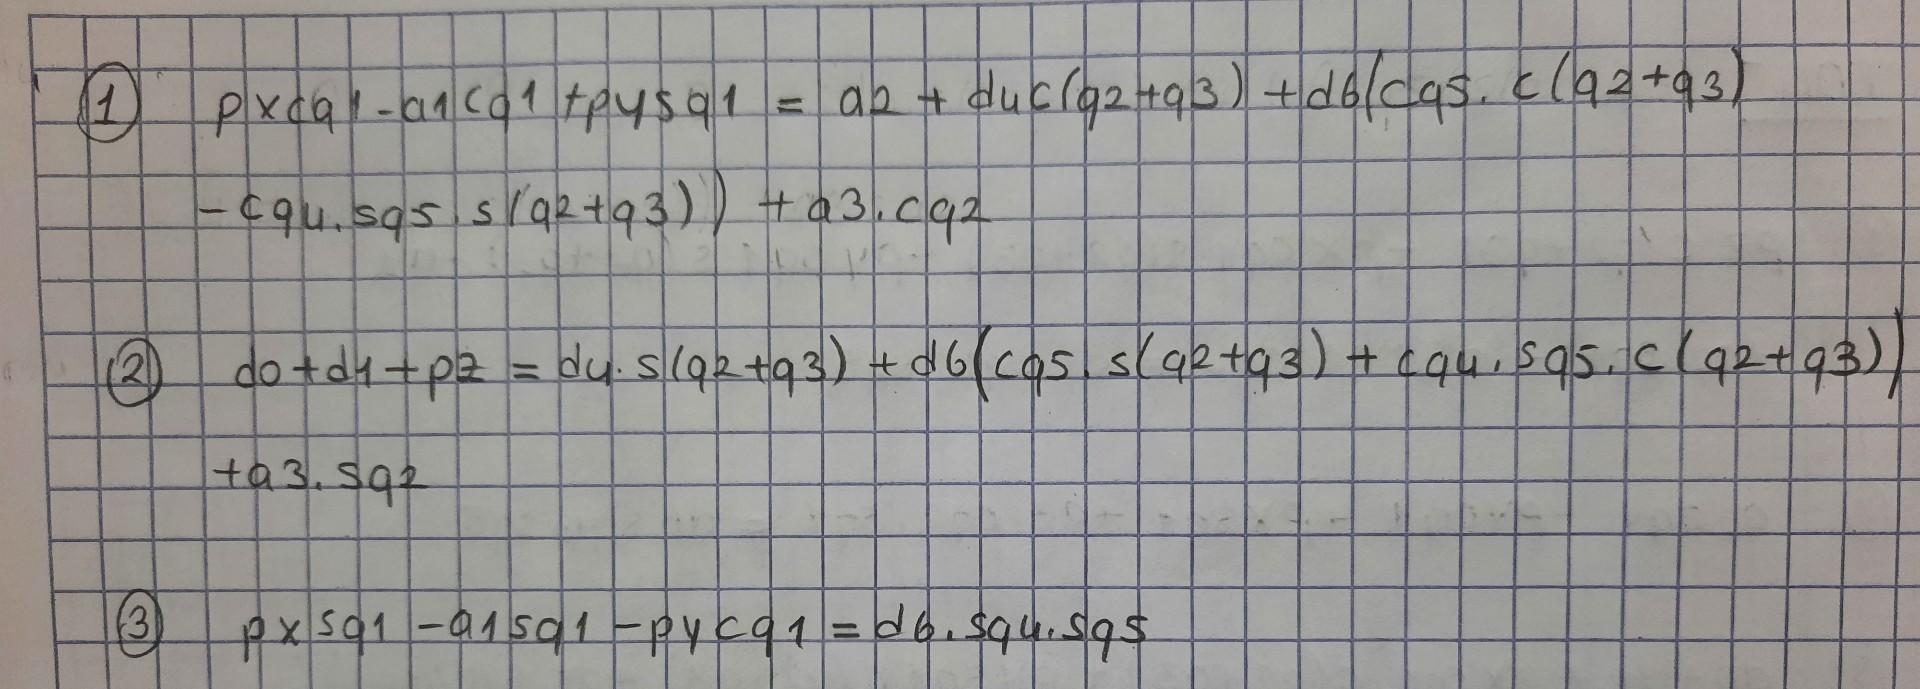 ① pxcq1-a1cq1+pysq1 = a2 + d4c(q2+q3) + d6(cq5.c(q2+q3)
-cq4.sq5.s(q2+q3)) + a3.cq2
② d0+d1+pz = d4.s(q2+q3) + d6(cq5.s(q2+q3) + cq4.sq5.c(q2+q3))
+a3.sq2
③ pxsq1-a1sq1-pycq1 = d6.sq4.sq5